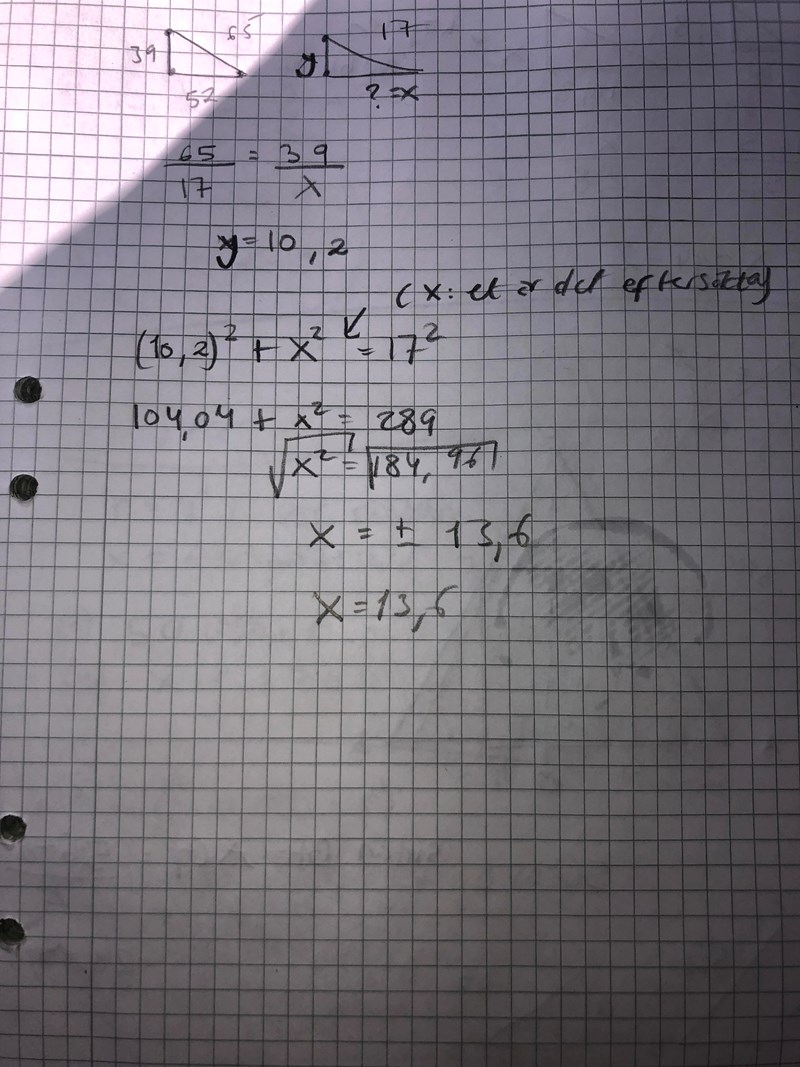 39 65 52
y 17 ? = x
65/17 = 39/x
y = 10,2
(x: et är det eftersökta)
(10,2)² + x² = 17²
104,04 + x² = 289
√x² = √184,96
x = ± 13,6
x = 13,6